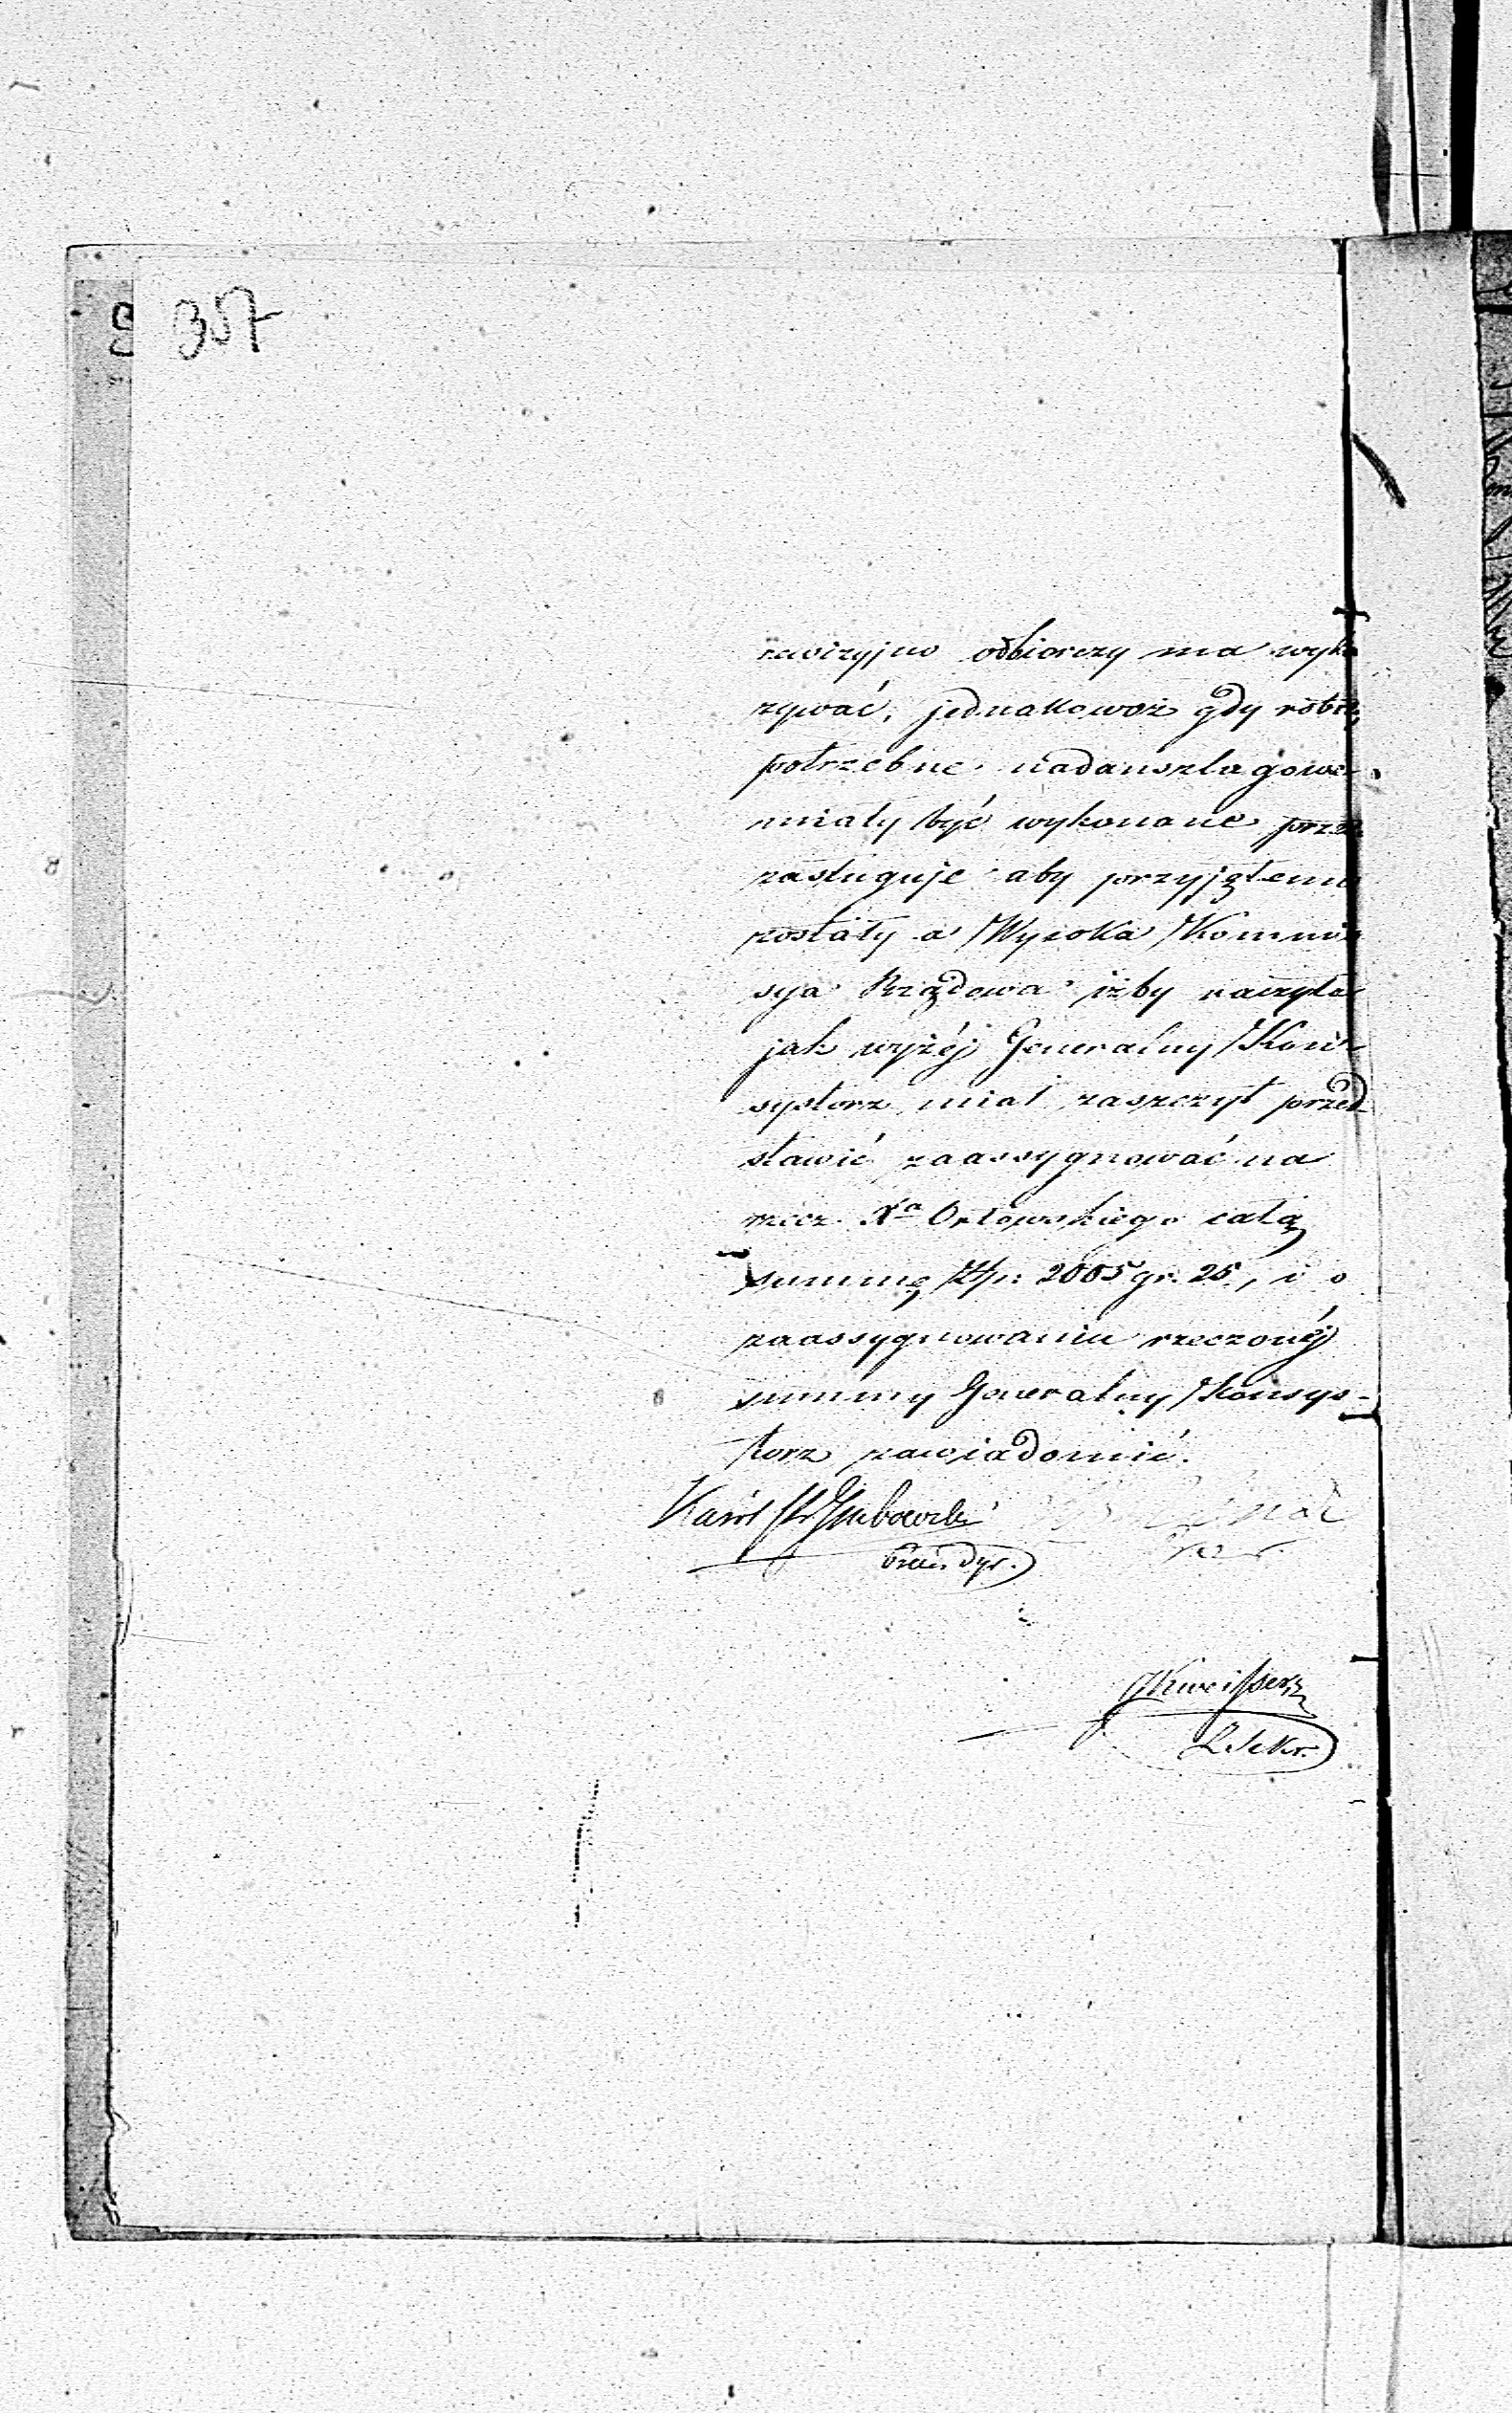 357
rewizyjno odbiorczy ma wyka
zywać, jednakowoż gdy roboty
potrzebne nadanszlagowe
miały być wykonane
zasługuje aby przyjętemi
zostały a Wysoka Kommis
sya Rządowa iżby raczyła
jak wyżéj Generalny Kon-
systorz miał zaszczyt przed
stawić zaassygnować na
rzecz Xa Orłowskiego całą
summę Złp: 2005 gr. 25, i o
zaassygnowaniu rzeczonéj
summy Generalny Konsys-
torz zawiadomić.
Karol
Sekr.